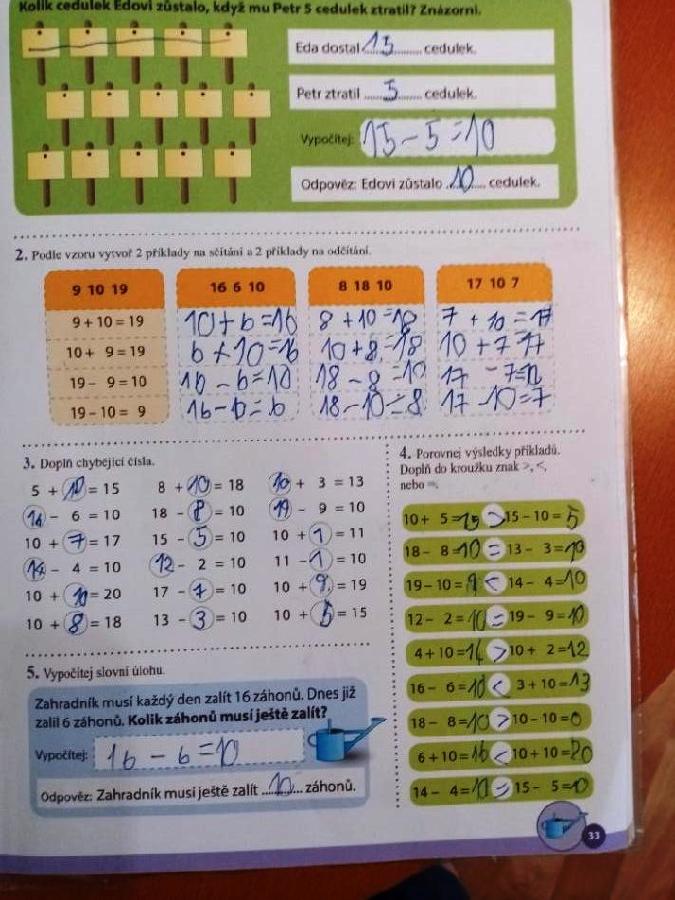 Kolik cedulek Edovi zůstalo, když mu Petr 5 cedulek ztratil? Znázorni.
Eda dostal 15 cedulek.
Petr ztratil 5 cedulek.
Vypočítej: 15 - 5 = 10
Odpověz: Edovi zůstalo 10 cedulek.
2. Podle vzoru vytvoř 2 příklady na sčítání a 2 příklady na odčítání.
9 10 19 16 6 10 8 18 10 17 10 7
9 + 10 = 19 10 + 6 = 16 8 + 10 = 18 7 + 10 = 17
10 + 9 = 19 6 + 10 = 16 10 + 8 = 18 10 + 7 = 17
19 - 9 = 10 16 - 6 = 10 18 - 8 = 10 17 - 7 = 10
19 - 10 = 9 16 - 10 = 6 18 - 10 = 8 17 - 10 = 7
3. Doplň chybějící čísla.
5 + 10 = 15 8 + 10 = 18 10 + 3 = 13
16 - 6 = 10 18 - 8 = 10 19 - 9 = 10
10 + 7 = 17 15 - 5 = 10 10 + 1 = 11
14 - 4 = 10 12 - 2 = 10 11 - 1 = 10
10 + 10 = 20 17 - 7 = 10 10 + 9 = 19
10 + 8 = 18 13 - 3 = 10 10 + 5 = 15
4. Porovnej výsledky příkladů.
Doplň do kroužku znak >, <,
nebo =.
10 + 5 = 15 > 15 - 10 = 5
18 - 8 = 10 = 13 - 3 = 10
19 - 10 = 9 < 14 - 4 = 10
12 - 2 = 10 = 19 - 9 = 10
4 + 10 = 14 > 10 + 2 = 12
16 - 6 = 10 < 3 + 10 = 13
18 - 8 = 10 > 10 - 10 = 0
6 + 10 = 16 < 10 + 10 = 20
14 - 4 = 10 = 15 - 5 = 10
5. Vypočítej slovní úlohu.
Zahradník musí každý den zalít 16 záhonů. Dnes již
zalil 6 záhonů. Kolik záhonů musí ještě zalít?
Vypočítej: 16 - 6 = 10
Odpověz: Zahradník musí ještě zalít 10 záhonů.
33